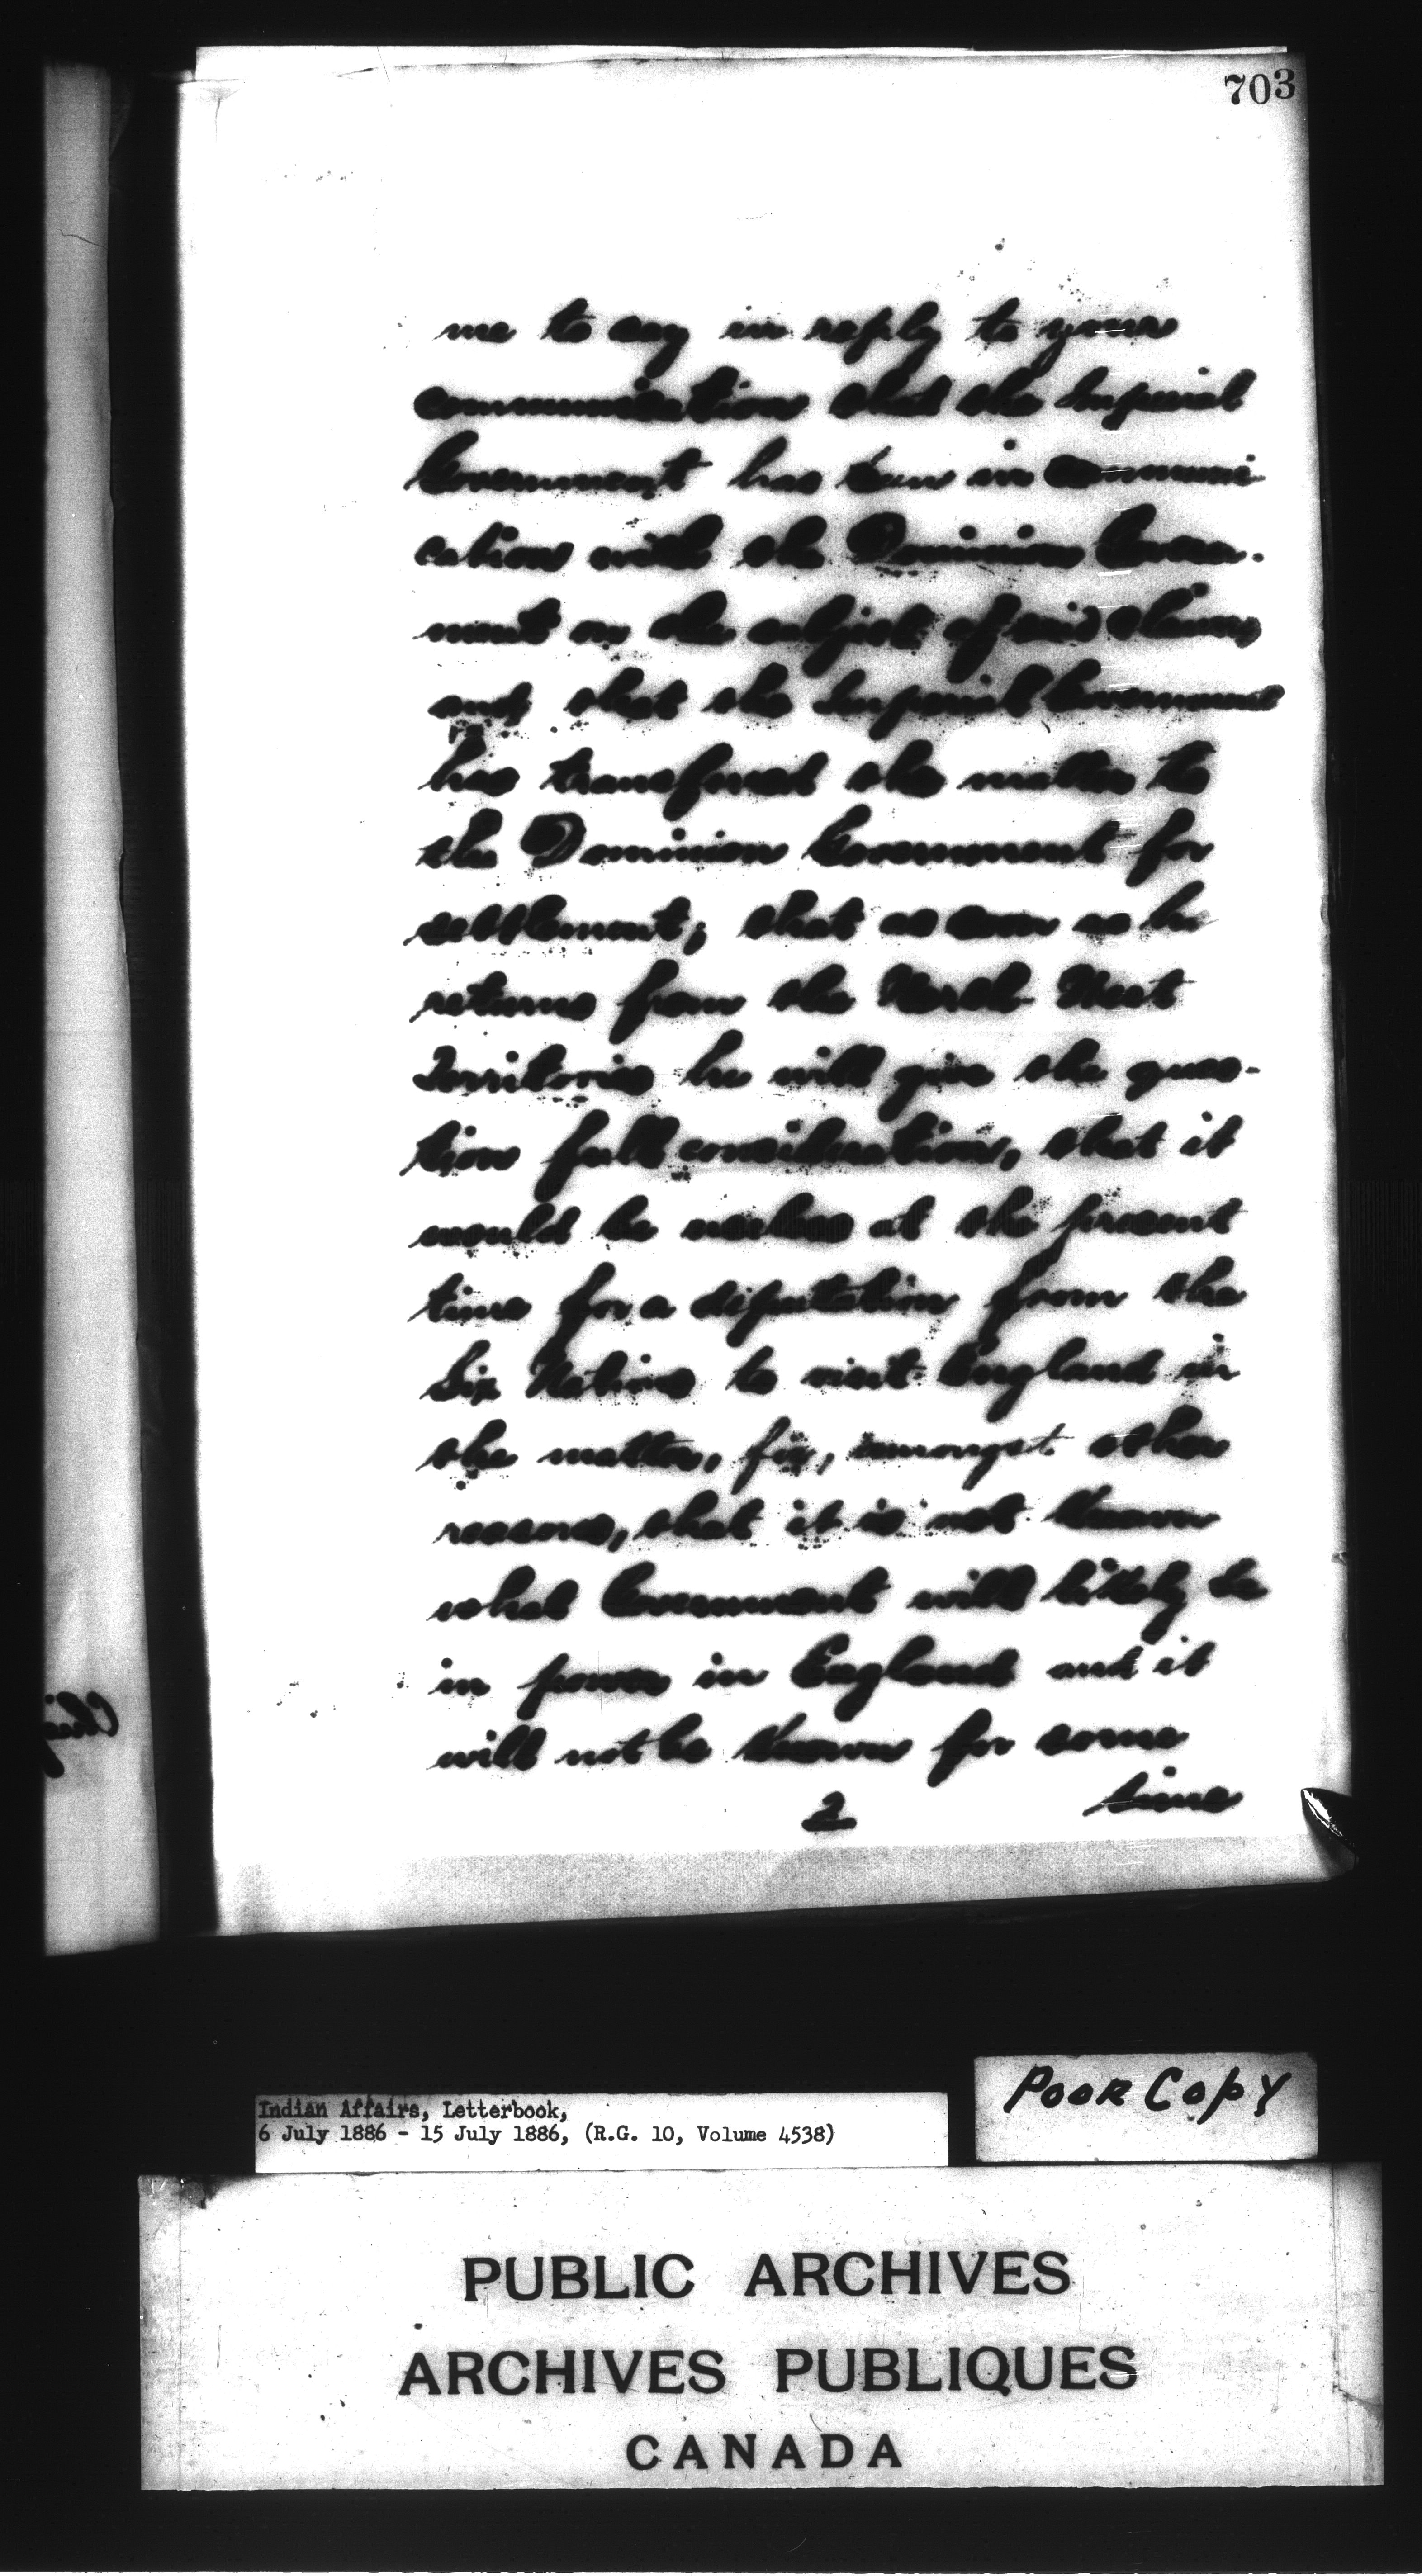 703
me to say in reply to your
communication that the Imperial
Government has been in communi
cation with the Dominion Govern-
ment on the subject of said claim,
and that the Imperial Government
has transferred the matter to
the Dominion Government for
settlement; that as soon as he
returns from the North West
Territories he will give the ques-
tion full consideration, that it
would be useless at the present
time for a deputation from the
Six Nations to visit England in
the matter, for, amongst other
reasons, that it is not known
what Government will likely be
in power in England and it
will not be known for some
2 time
Indian Affairs, Letterbook,
6 July 1886 - 15 July 1886, (R.G. 10, Volume 4538)
POOR COPY
PUBLIC ARCHIVES
ARCHIVES PUBLIQUES
CANADA